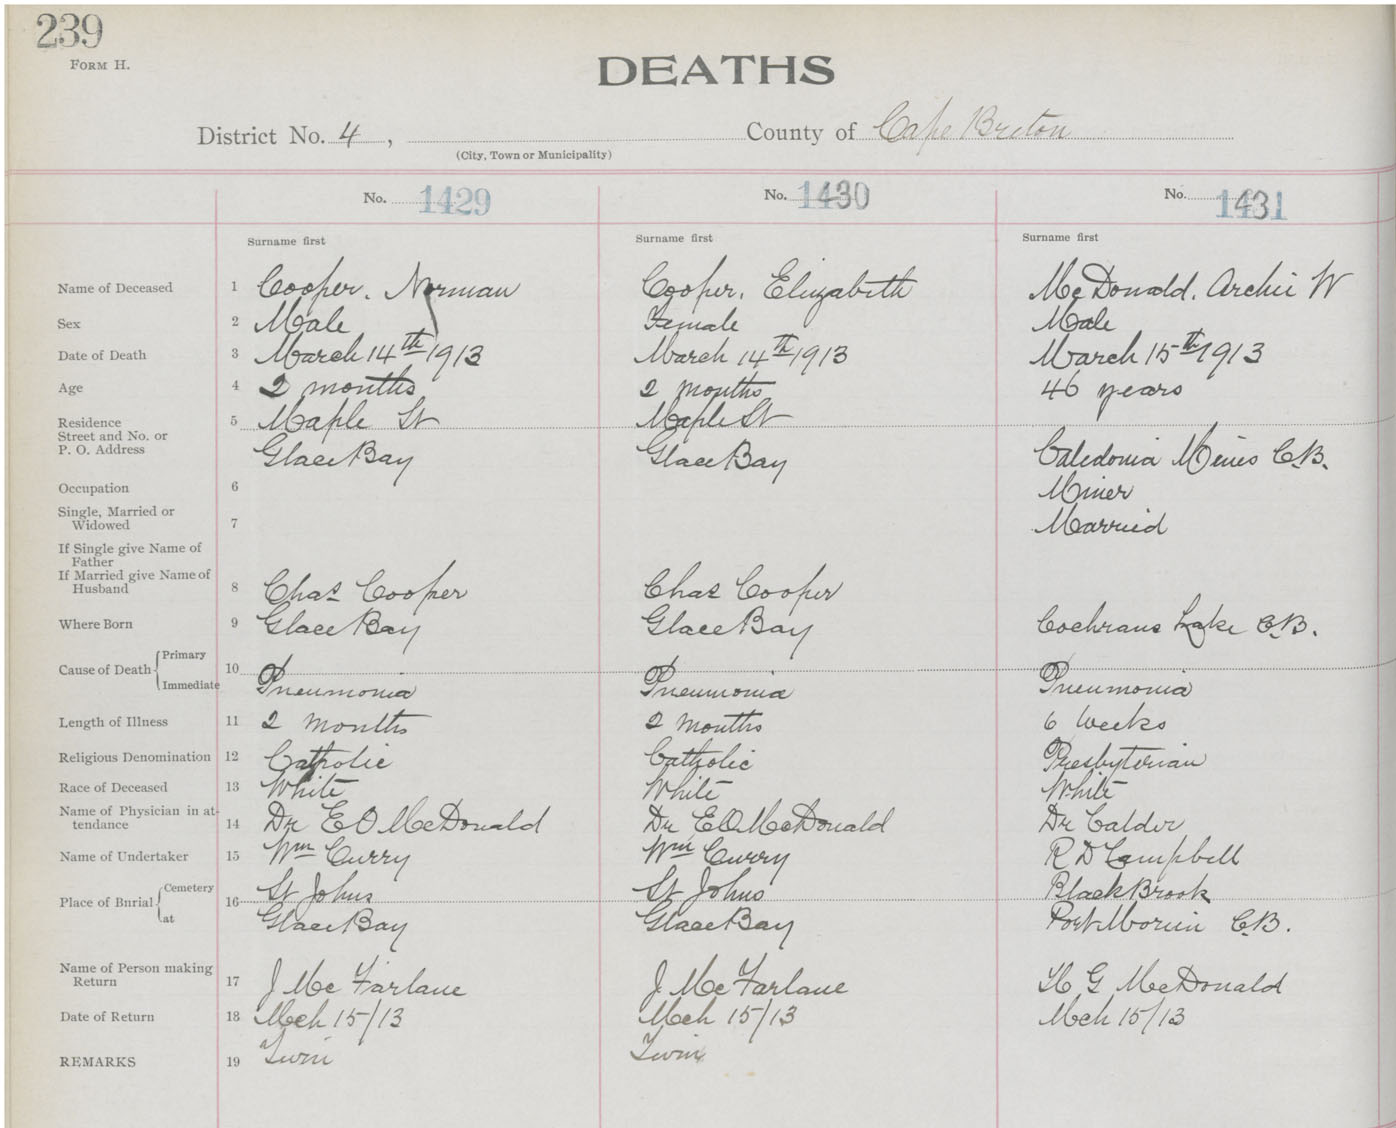 239
FORM H.
DEATHS
District No. 4, County of Cape Breton
(City, Town or Municipality)
No. 1429 No. 1430 No. 1431
Surname first Surname first Surname first
Name of Deceased 1 Cooper. Norman Cooper. Elizabeth McDonald. Archie W
Sex 2 Male Female Male
Date of Death 3 March 14th 1913 March 14th 1913 March 15th 1913
Age 4 2 months 2 months 46 years
Residence 5 Maple St Maple St
Street and No. or
P. O. Address Glace Bay Glace Bay Caledonia Mines C.B.
Occupation 6 Miner
Single, Married or
Widowed 7 Married
If Single give Name of
Father
If Married give Name of
Husband 8 Chas Cooper Chas Cooper
Where Born 9 Glace Bay Glace Bay Cochrans Lake C.B.
Cause of Death Primary 10
Immediate Pneumonia Pneumonia Pneumonia
Length of Illness 11 2 months 2 months 6 weeks
Religious Denomination 12 Catholic Catholic Presbyterian
Race of Deceased 13 White White White
Name of Physician in at-
tendance 14 Dr E O McDonald Dr E O McDonald Dr Calder
Name of Undertaker 15 Wm Curry Wm Curry R D Campbell
Place of Burial Cemetery 16 St Johns St Johns Black Brook
at Glace Bay Glace Bay Port Morien C.B.
Name of Person making
Return 17 J McFarlane J McFarlane H G McDonald
Date of Return 18 Mch 15/13 Mch 15/13 Mch 15/13
REMARKS 19 Twin Twin